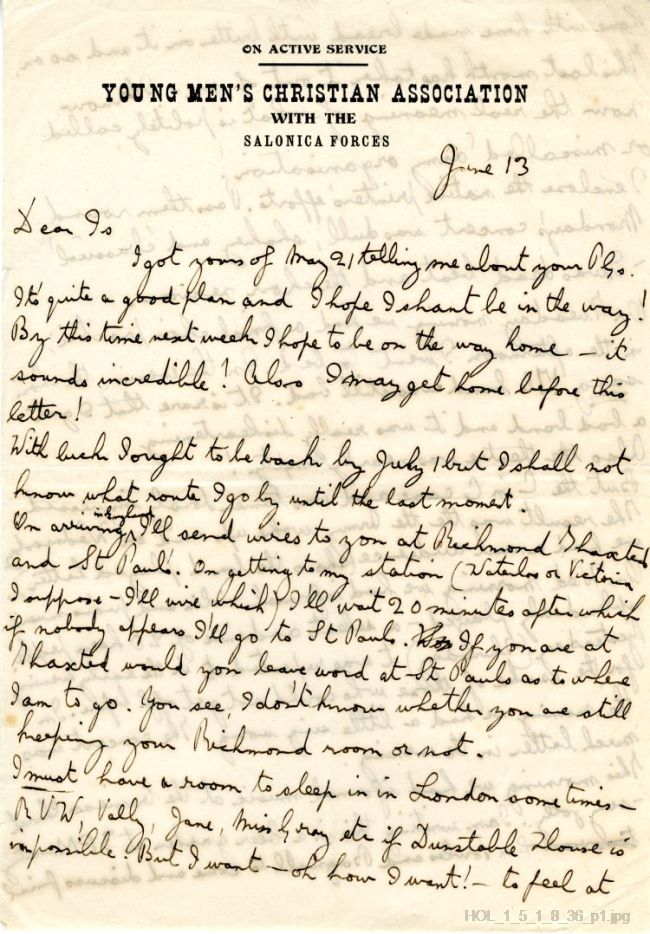 ON ACTIVE SERVICE
YOUNG MEN'S CHRISTIAN ASSOCIATION
WITH THE
SALONICA FORCES
June 13
Dear Is
I got yours of May 21 telling me about your PGs.
It's quite a good plan and I hope I shant be in the way!
By this time next week I hope to be on the way home – it
sounds incredible! Also I may get home before this
letter!
With luck I ought to be back by July 1 but I shall not
know what route I go by until the last moment.
On arriving in England I'll send wires to you at Richmond Thaxted
and St Paul's. On getting to my station (Waterloo or Victoria
I suppose – I'll wire which) I'll wait 20 minutes after which
if nobody appears I'll go to St Pauls. If you are at
Thaxted would you leave word at St Pauls as to where
I am to go. You see, I don't know whether you are still
keeping your Richmond room or not.
I must have a room to sleep in in London sometimes –
R V W, Vally, Jane, Miss Gray etc if Dunstable House is
impossible. But I want – oh how I want! – to feel at
HOL_1_5_1_8_36_p1.jpg